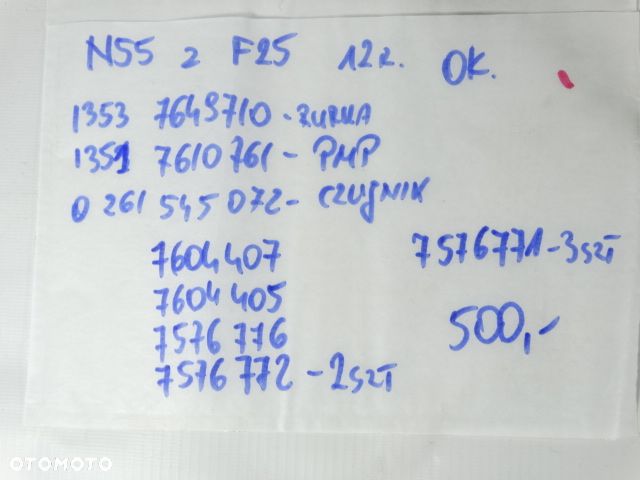 N55 z F25 12r. OK.
1353 7649710 - RURKA
1351 7610761 - PMP
0 261 545 072 - CZUJNIK
7604407
7576771 - 3szt
7604405
7576776
500,-
7576772 - 2szt
OTOMOTO